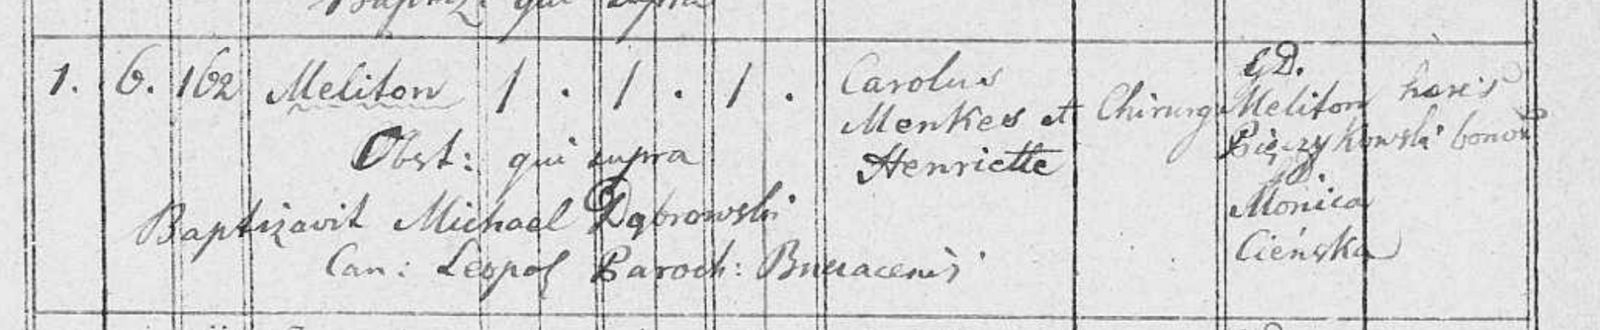 Baptiz: qui supra
1. 6. 162 Meliton 1 . 1 . 1 . Carolus Menkes et Henriette Chirurg GD. Meliton Pięczykowski hæres bonor
Obst: qui supra
Baptizavit Michael Dąbrowski
Can: Leopol Paroch: Buczacensis
GD
Monica
Cieńska